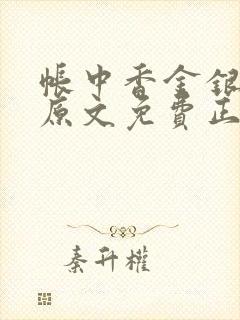 帳中香金銀
原文免費正
秦升權